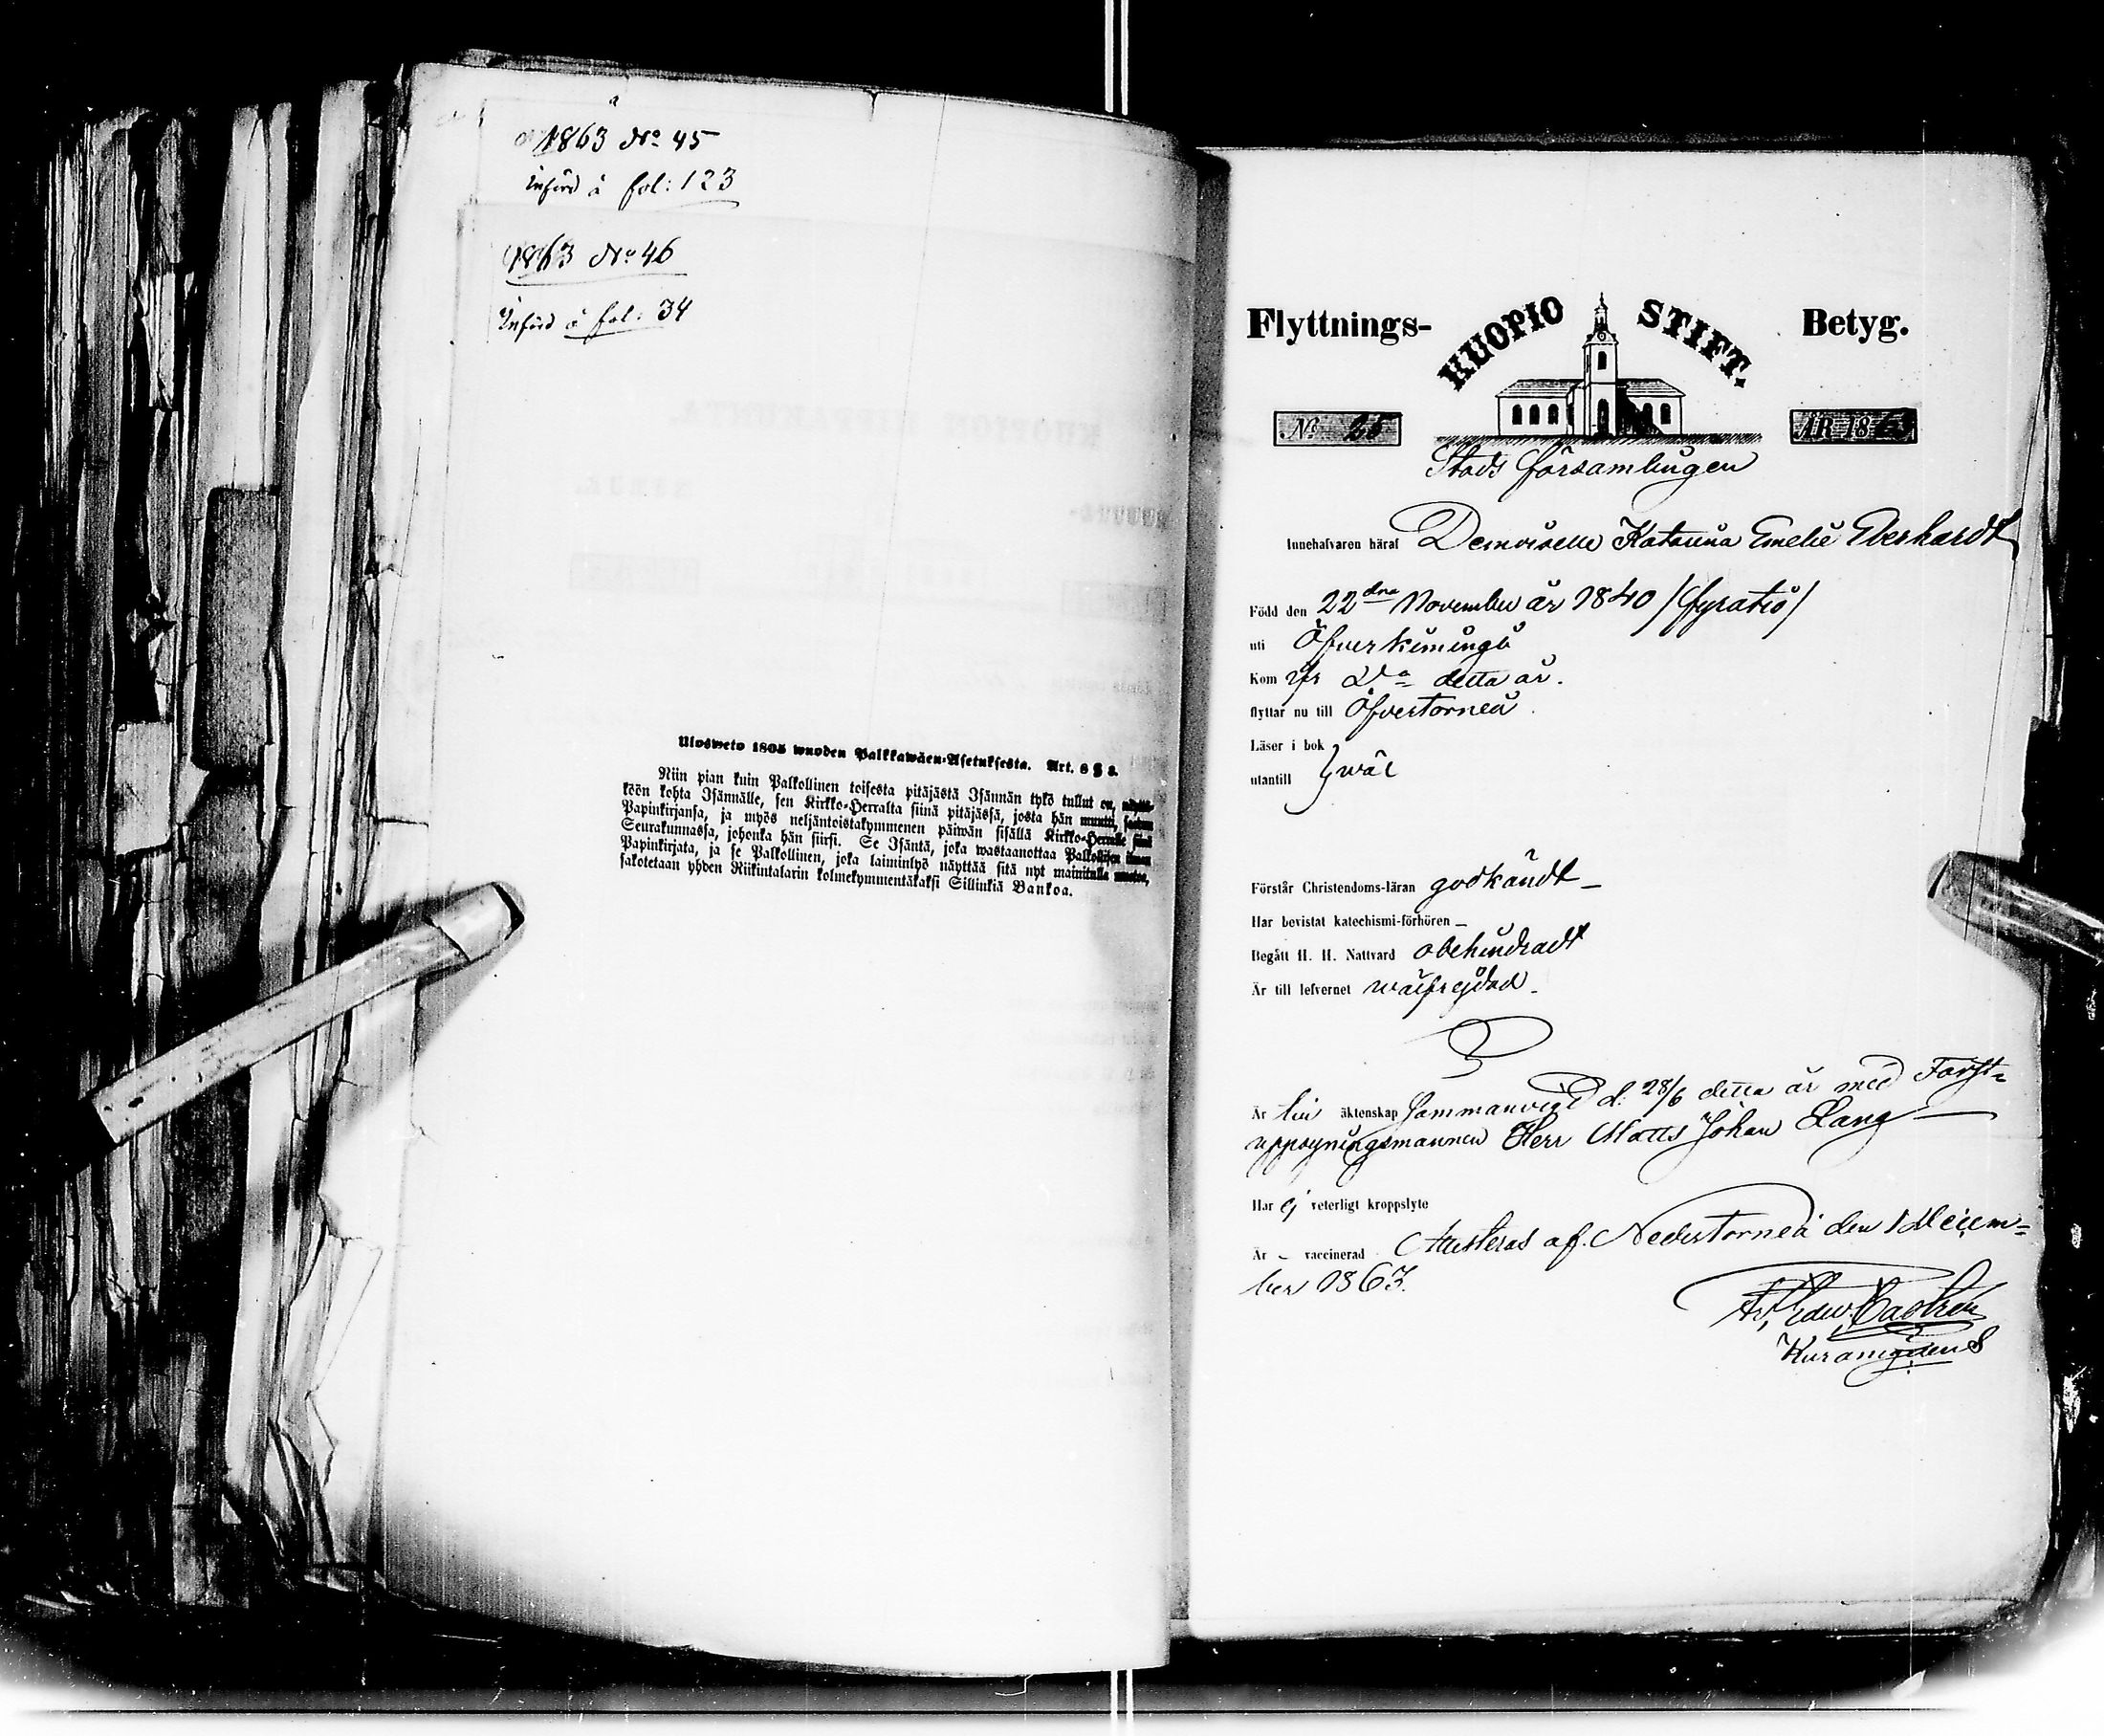 1863 No 45
Införd å fol: 123
1863 No 46
Införd å fol: 34
Ulosweto 1805 wuoden Palkkawäen-Asetuksesta. Art. 8 § 3.
Niin pian kuin Palkollinen toisesta pitäjästä Isännän tykö tullut on,
köön kohta Isännälle, sen Kirkko-Herralta siinä pitäjässä, josta hän muutti,
Papinkirjansa, ja myös neljäntoistakymmenen päiwän sisällä Kirkko-Herralle siinä
Seurakunnassa, johonka hän siirsi. Se Isäntä, joka wastaanottaa Palkollisen ilman
Papinkirjata, ja se Palkollinen, joka laiminlyö näyttää sitä nyt mainitulla
sakotetaan yhden Riikintalarin kolmekymmentäkaksi Sillinkiä Bankoa.
Flyttnings- KUOPIO STIFT. Betyg.
No 25 ÅR 1863
Stads församlingen
Innehafvaren häraf Demoiselle Katarina Emelie Eberhardt
Född den 22dra November år 1840 /fyratio/
uti Öfverkiminge
Kom detta år.
flyttar nu till Öfvertorneå
Läser i bok
utantill } wäl
Förstår Christendoms-läran godkändt –
Har bevistat katechismi-förhören –
Begått H. H. Nattvard obehindradt
Är till lefvernet wälfrejdad –
Är till äktenskap Sammanvigd d: 28/6 detta år med Forst-
uppsyningsmannen Herr Matts Johan Lang –
Har ej veterligt kroppslyte
Är – vaccinerad Attesteras af. Nedertorneå den 1 Decem-
ber 1863.
Castrén